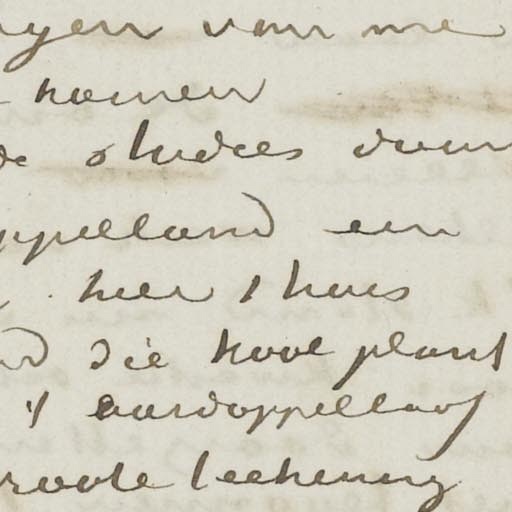 van me
komen
de studies van
appelland een
hier t huis
die kool plant
't aardappelloof
groote teekening